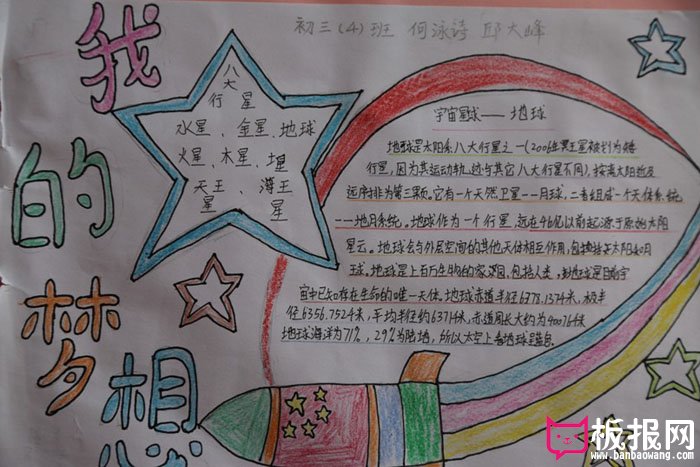 初三(4)班 何泳诗 邱大峰
我的梦想
八大
行星
水星、金星、地球
火星、木星、
天王星、海王星
宇宙星球——地球
地球是太阳系八大行星之一(2006年冥王星被划为矮
行星,因为其运动轨迹与其它八大行星不同),按离太阳近及
远序排为第三颗。它有一个天然卫星——月球,二者组成一个天体系统
——地月系统。地球作为一个行星,远在46亿以前起源于原始太阳
星云。地球会与外层空间的其他天体相互作用,包括太阳和月
球。地球是上百万生物的家园,包括人类。地球是目前宇
宙中已知存在生命的唯一天体。地球赤道半径6378.137米,极半
径6356.752米,平均半径约6371米,赤道周长大约为40076米
地球海洋为71%,29%为陆地,所以太空上看地球呈蓝色
板报网
www.banbaowang.com